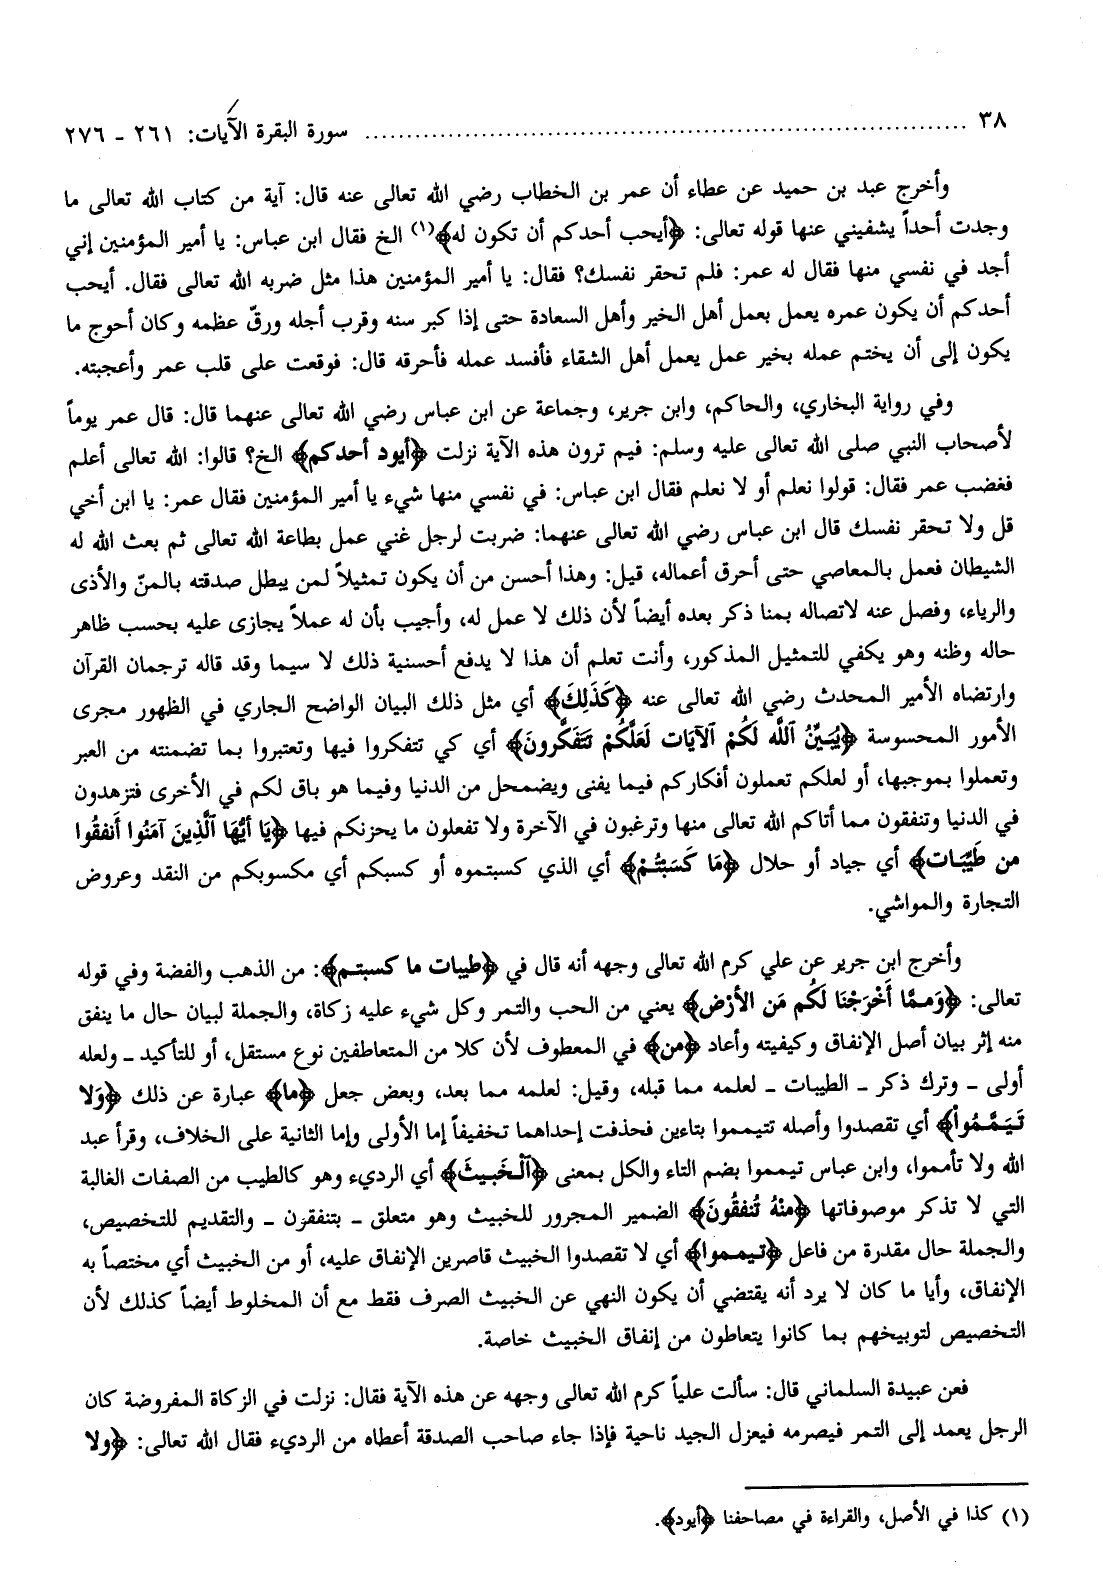 ٣٨ ........................................ سورة البقرة الآيات: ٢٦١ - ٢٧٦
وأخرج عبد بن حميد عن عطاء أن عمر بن الخطاب رضي الله تعالى عنه قال: آية من كتاب الله تعالى ما
وجدت أحداً يشفيني عنها قوله تعالى: ﴿أيحب أحدكم أن تكون له﴾(١) الخ فقال ابن عباس: يا أمير المؤمنين إني
أجد في نفسي منها فقال له عمر: فلم تحقر نفسك؟ فقال: يا أمير المؤمنين هذا مثل ضربه الله تعالى فقال. أيحب
أحدكم أن يكون عمره يعمل بعمل أهل الخير وأهل السعادة حتى إذا كبر سنه وقرب أجله ورقّ عظمه وكان أحوج ما
يكون إلى أن يختم عمله بخير عمل يعمل أهل الشقاء فأفسد عمله فأحرقه قال: فوقعت على قلب عمر وأعجبته.
وفي رواية البخاري، والحاكم، وابن جرير، وجماعة عن ابن عباس رضي الله تعالى عنهما قال: قال عمر يوماً
لأصحاب النبي صلى الله تعالى عليه وسلم: فيم ترون هذه الآية نزلت ﴿أيود أحدكم﴾ الخ؟ قالوا: الله تعالى أعلم
فغضب عمر فقال: قولوا نعلم أو لا نعلم فقال ابن عباس: في نفسي منها شيء يا أمير المؤمنين فقال عمر: يا ابن أخي
قل ولا تحقر نفسك قال ابن عباس رضي الله تعالى عنهما: ضربت لرجل غني عمل بطاعة الله تعالى ثم بعث الله له
الشيطان فعمل بالمعاصي حتى أحرق أعماله، قيل: وهذا أحسن من أن يكون تمثيلاً لمن يبطل صدقته بالمنّ والأذى
والرياء، وفصل عنه لاتصاله بمنا ذكر بعده أيضاً لأن ذلك لا عمل له، وأجيب بأن له عملاً يجازى عليه بحسب ظاهر
حاله وظنه وهو يكفي للتمثيل المذكور، وأنت تعلم أن هذا لا يدفع أحسنية ذلك لا سيما وقد قاله ترجمان القرآن
وارتضاه الأمير المحدث رضي الله تعالى عنه ﴿كَذَلِكَ﴾ أي مثل ذلك البيان الواضح الجاري في الظهور مجرى
الأمور المحسوسة ﴿يُبَيِّنُ ٱللَّه لَكُمْ ٱلآيَات لَعَلَّكُمْ تَتَفَكَّرونَ﴾ أي كي تتفكروا فيها وتعتبروا بما تضمنته من العبر
وتعملوا بموجبها، أو لعلكم تعملون أفكاركم فيما يفنى ويضمحل من الدنيا وفيما هو باق لكم في الأخرى فتزهدون
في الدنيا وتنفقون مما أتاكم الله تعالى منها وترغبون في الآخرة ولا تفعلون ما يحزنكم فيها ﴿يَا أَيُّهَا ٱلَّذِينَ آمَنُوا أَنفقُوا
من طَيِّبَات﴾ أي جياد أو حلال ﴿مَا كَسَبْتُمْ﴾ أي الذي كسبتموه أو كسبكم أي مكسوبكم من النقد وعروض
التجارة والمواشي.
وأخرج ابن جرير عن علي كرم الله تعالى وجهه أنه قال في ﴿طيبات ما كسبتم﴾: من الذهب والفضة وفي قوله
تعالى: ﴿وَممَّا أَخْرَجْنَا لَكُم مَن الأرْض﴾ يعني من الحب والتمر وكل شيء عليه زكاة، والجملة لبيان حال ما ينفق
منه إثر بيان أصل الإنفاق وكيفيته وأعاد ﴿من﴾ في المعطوف لأن كلا من المتعاطفين نوع مستقل، أو للتأكيد - ولعله
أولى - وترك ذكر - الطيبات - لعلمه مما قبله، وقيل: لعلمه مما بعد، وبعض جعل ﴿ما﴾ عبارة عن ذلك ﴿وَلا
تَيَمَّمُواْ﴾ أي تقصدوا وأصله تتيمموا بتاءين فحذفت إحداهما تخفيفاً إما الأولى وإما الثانية على الخلاف، وقرأ عبد
الله ولا تأمموا، وابن عباس تيمموا بضم التاء والكل بمعنى ﴿ٱلْخَبيثَ﴾ أي الرديء وهو كالطيب من الصفات الغالبة
التي لا تذكر موصوفاتها ﴿منْهُ تُنفقُونَ﴾ الضمير المجرور للخبيث وهو متعلق - بتنفقون - والتقديم للتخصيص،
والجملة حال مقدرة من فاعل ﴿تيمموا﴾ أي لا تقصدوا الخبيث قاصرين الإنفاق عليه، أو من الخبيث أي مختصاً به
الإنفاق، وأيا ما كان لا يرد أنه يقتضي أن يكون النهي عن الخبيث الصرف فقط مع أن المخلوط أيضاً كذلك لأن
التخصيص لتوبيخهم بما كانوا يتعاطون من إنفاق الخبيث خاصة.
فعن عبيدة السلماني قال: سألت علياً كرم الله تعالى وجهه عن هذه الآية فقال: نزلت في الزكاة المفروضة كان
الرجل يعمد إلى التمر فيصرمه فيعزل الجيد ناحية فإذا جاء صاحب الصدقة أعطاه من الرديء فقال الله تعالى: ﴿ولا
(١) كذا في الأصل، والقراءة في مصاحفنا ﴿أيود﴾.